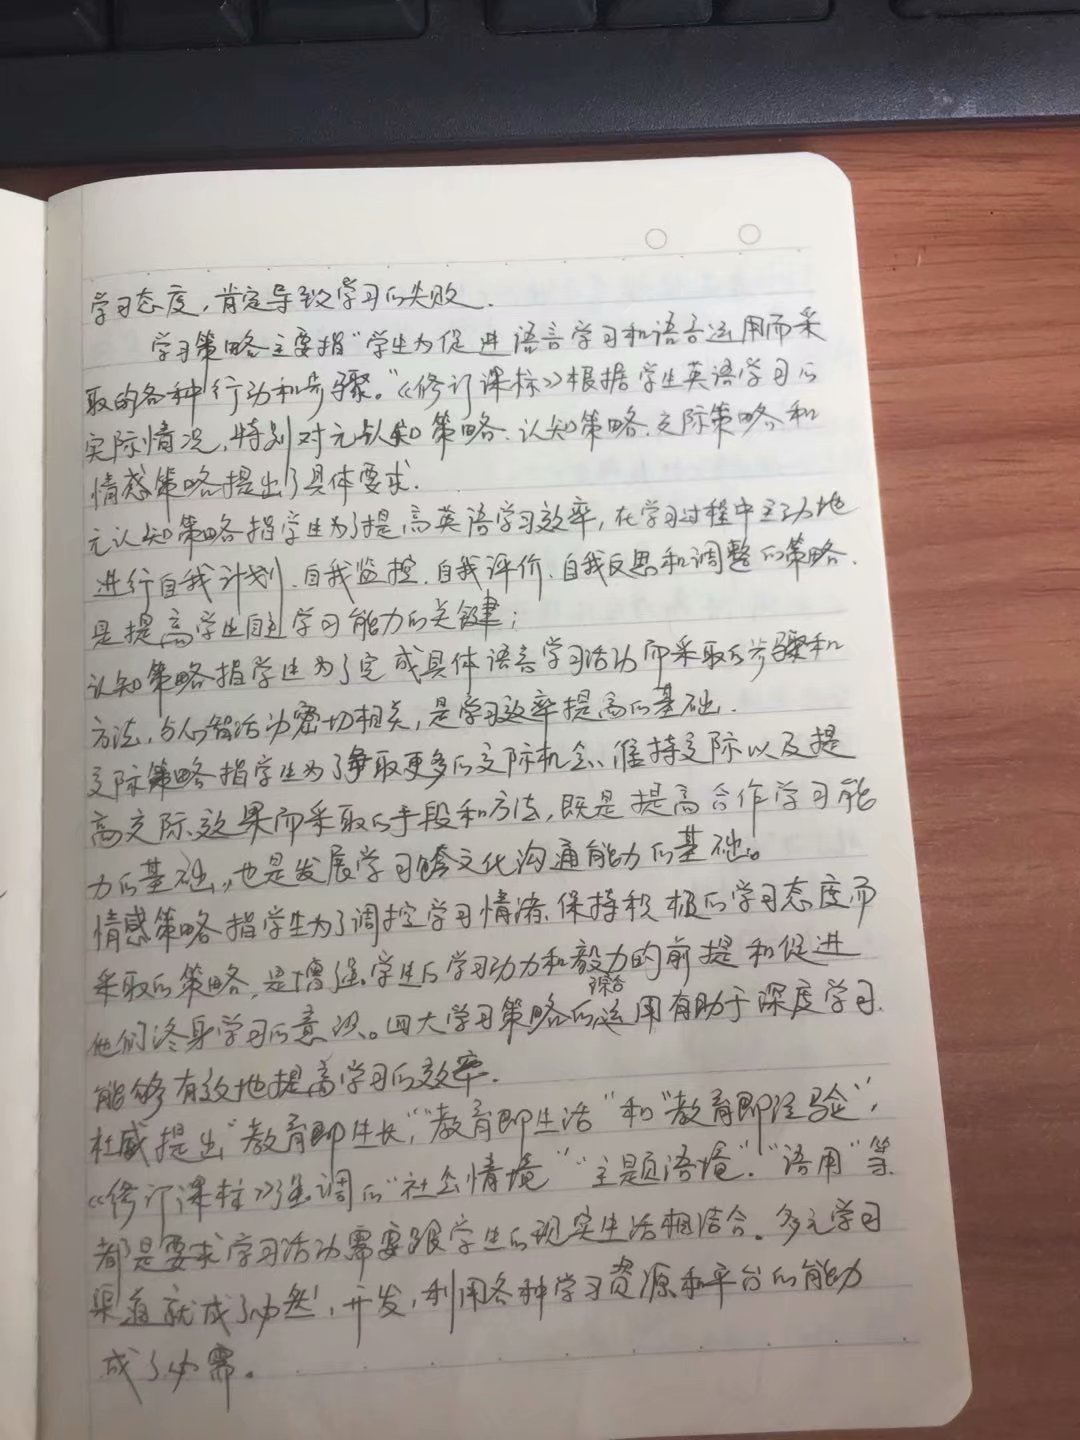 学习态度，肯定导致学习的失败.
学习策略主要指“学生为促进语言学习和语言运用而采
取的各种行动和步骤。”《修订课标》根据学生英语学习的
实际情况，特别对元认知策略、认知策略、交际策略和
情感策略提出了具体要求.
元认知策略指学生为了提高英语学习效率，在学习过程中主动地
进行自我计划、自我监控、自我评价、自我反思和调整的策略.
是提高学生自主学习能力的关键；
认知策略指学生为了完成具体语言学习活动而采取的步骤和
方法，与心智活动密切相关，是学习效率提高的基础.
交际策略指学生为了争取更多的交际机会、维持交际以及提
高交际效果而采取的手段和方法，既是提高合作学习能
力的基础，也是发展学习跨文化沟通能力的基础。
情感策略指学生为了调控学习情绪、保持积极的学习态度而
采取的策略，是增强学生的学习动力和毅力的前提和促进
他们终身学习的意识。四大学习策略的综合运用有助于深度学习.
能够有效地提高学习的效率.
杜威提出“教育即生长，”“教育即生活”和“教育即经验”，
《修订课标》强调的“社会情境”“主题语境”.“语用”等.
都是要求学习活动需要跟学生的现实生活相结合。多元学习
渠道就成了必然，开发，利用各种学习资源和平台的能力
成了必需。